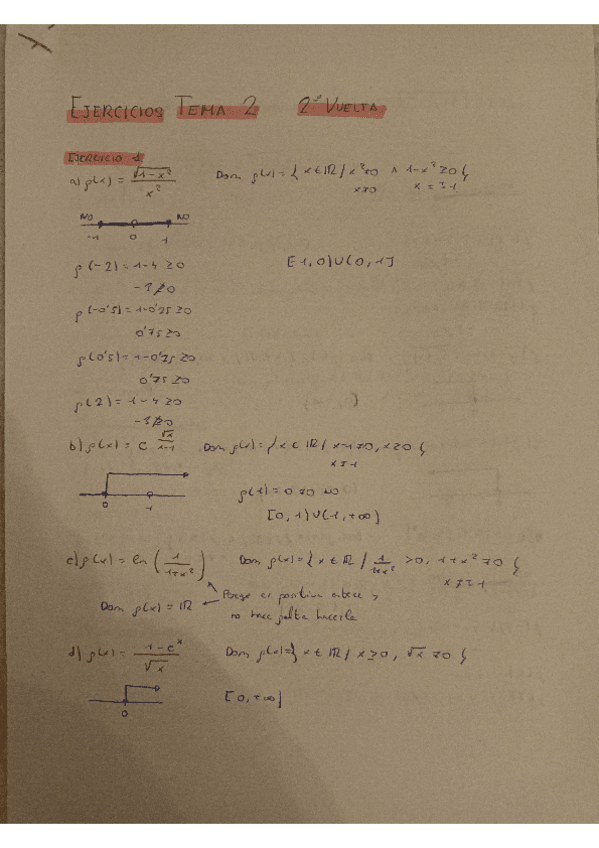 EJERCICIOS TEMA 2 2ª VUELTA
EJERCICIO 1
a) f(x) = √(1-x²) / x² Dom f(x) = { x ∈ ℝ / x² ≠ 0 ∧ 1-x² ≥ 0 }
x≠0 x = ±1
NO NO
-1 0 1
f(-2) = 1-4 ≥ 0 [-1,0)∪(0,1]
-3 ≱ 0
f(-0'5) = 1-0'25 ≥ 0
0'75 ≥ 0
f(0'5) = 1-0'25 ≥ 0
0'75 ≥ 0
f(2) = 1-4 ≥ 0
-3 ≱ 0
b) f(x) = e^(√x / x-1) Dom f(x) = { x ∈ ℝ / x-1 ≠ 0, x ≥ 0 }
x ≠ 1
0 1 f(1) = 0 ≠ 0 NO
[0,1)∪(1,+∞]
c) f(x) = ln (1 / 1+x²) Dom f(x) = { x ∈ ℝ / 1 / 1+x² > 0, 1+x² ≠ 0 }
x ≠ ±1
Porque es positivo entero y
Dom f(x) = ℝ no hace falta hacerlo
d) f(x) = 1-e^x / √x Dom f(x) = { x ∈ ℝ / x ≥ 0, √x ≠ 0 }
0 [0,+∞]